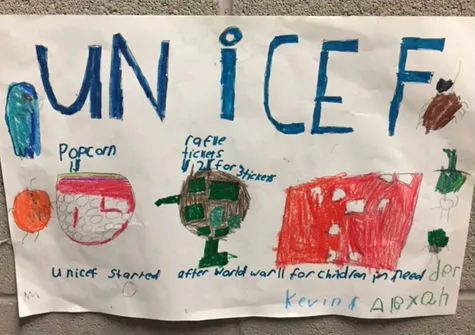 UNiCEF
Popcorn
rafile
tickets
2$ for 3tickets
unicef starred after World war II for children in need
Kevin &
der